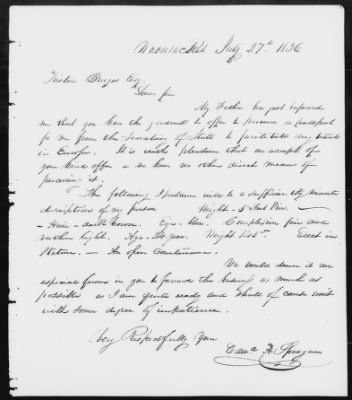 July 27th 1836
Tristam Burges Esq.
Dear Sir
My Father has just informed
me that you have the goodness to offer to procure a passport
for me from the Secretary of State to facilitate my travels
in Europe. It is with pleasure that we accept of
your kind offer as we have no other direct means of
procuring it.
The following I presume will be a sufficiently minute
description of my person Height - 5 feet
- Hair - dark brown. Eyes - blue. Complexion fair and
rather light. Age - years. Weight Erect in
stature. - An open Countenance.
We would deem it an
especial favor in you to forward the as much as
possible as I am quite ready and shall of course wait
with some degree of impatience.
Very Respectfully Yours
Edwd. A. Sprague